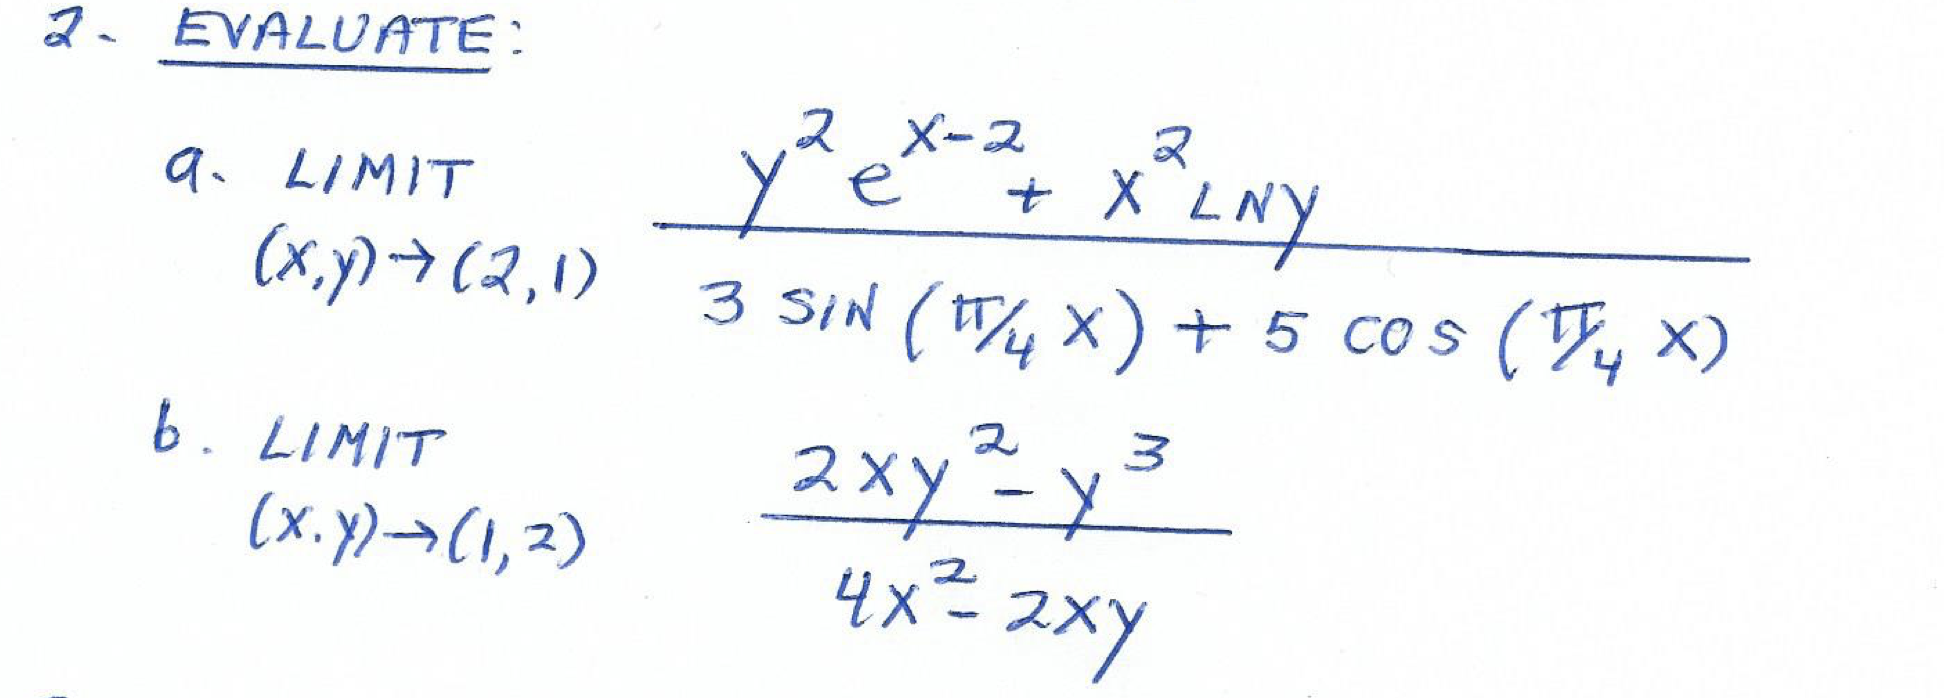 2. EVALUATE:
a. LIMIT (x,y)→(2,1) y² e^(x-2) + x² LN y / 3 SIN (π/4 x) + 5 COS (π/4 x)
b. LIMIT (x.y)→(1,2) 2xy² - y³ / 4x² - 2xy